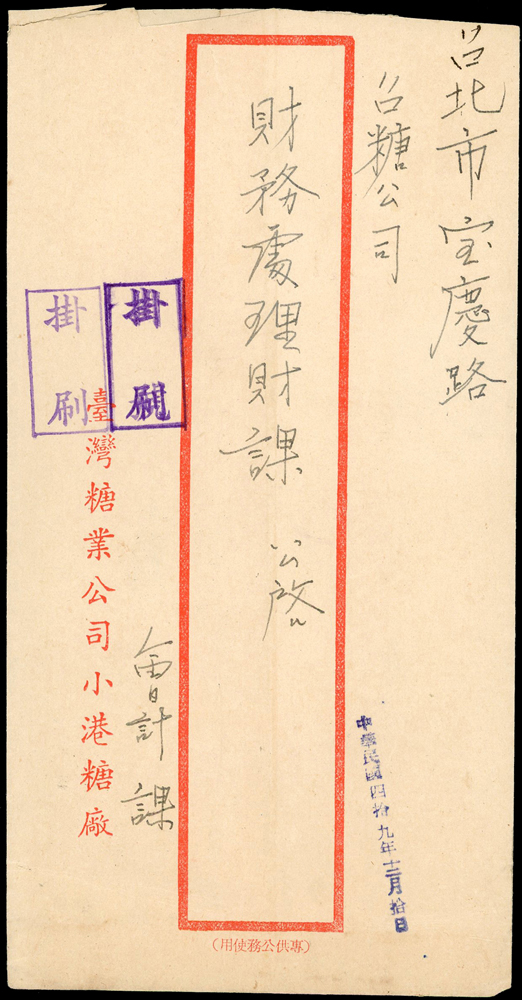 台北市宝慶路
台糖公司
財務處理財課 公啓
中華民國四拾九年十二月拾日
掛刷
掛刷
臺灣糖業公司小港糖廠
會計課
（專供公務使用）